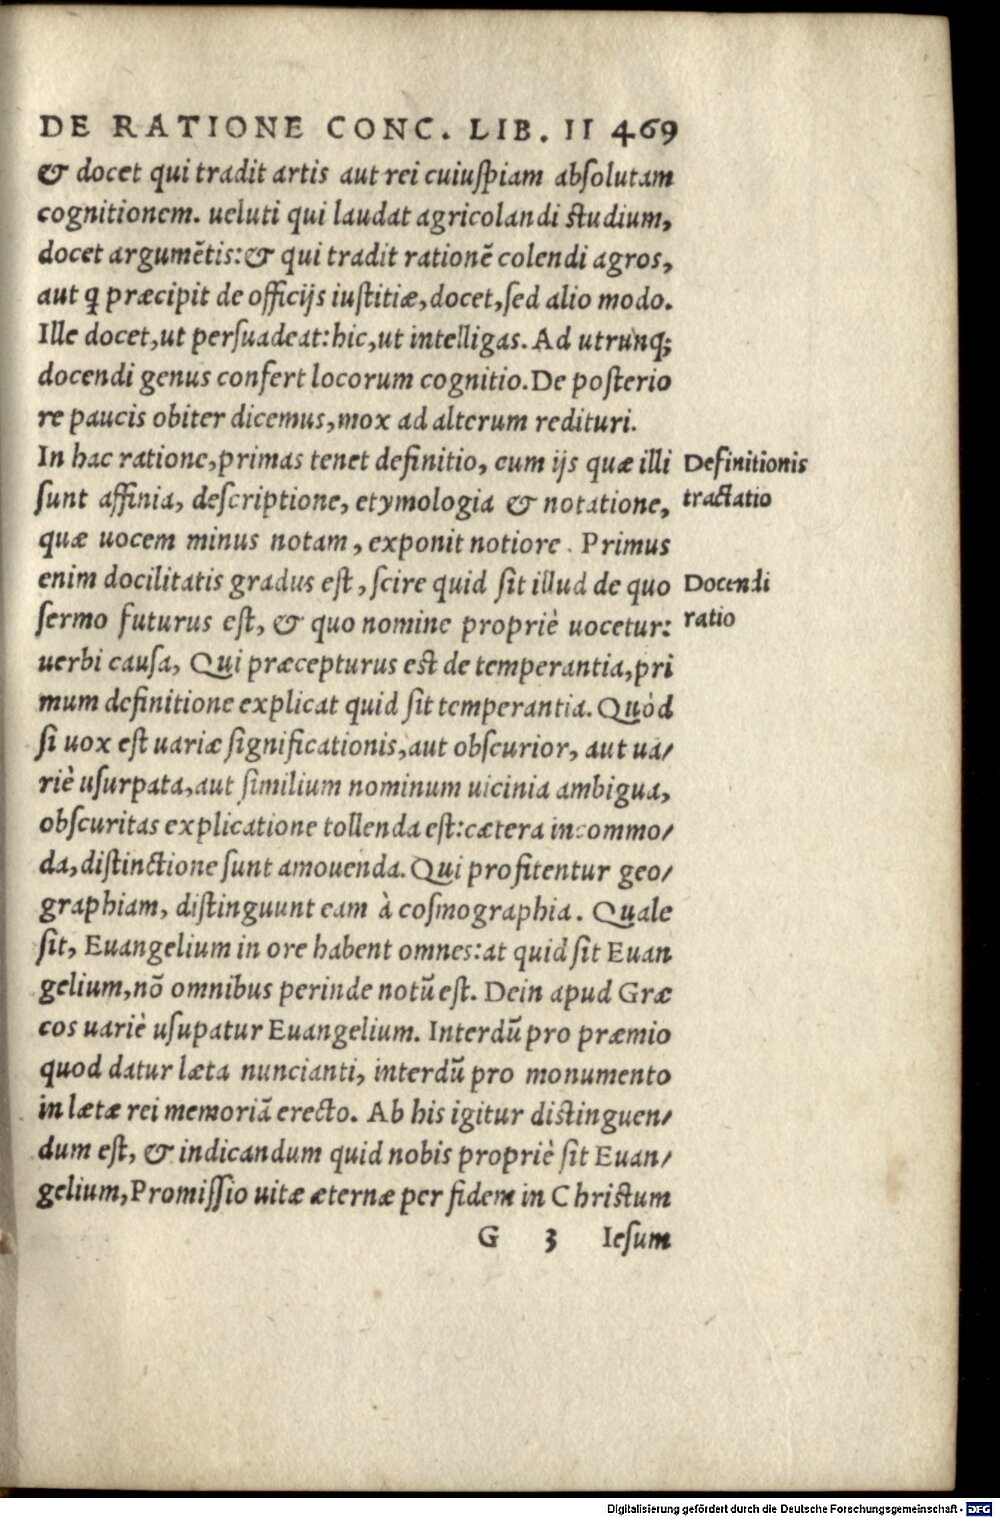 DE RATIONE CONC. LIB. II 469
& docet qui tradit artis aut rei cuiuſpiam abſolutam
cognitionem. ueluti qui laudat agricolandi ſtudium,
docet argumẽtis:& qui tradit rationẽ colendi agros,
aut ꝗ præcipit de officijs iuſtitiæ,docet,ſed alio modo.
Ille docet,ut perſuadeat:hic,ut intelligas. Ad utrunq;
docendi genus confert locorum cognitio.De poſterio
re paucis obiter dicemus,mox ad alterum redituri.
In hac ratione,primas tenet definitio, cum ijs quæ illi
Definitionis
ſunt affinia, deſcriptione, etymologia & notatione,
tractatio
quæ uocem minus notam, exponit notiore. Primus
enim docilitatis gradus eſt, ſcire quid ſit illud de quo
Docendi
ſermo futurus eſt, & quo nomine propriè uocetur:
ratio
uerbi cauſa, Qui præcepturus eſt de temperantia,pri
mum definitione explicat quid ſit temperantia. Quòd
ſi uox eſt uariæ ſignificationis,aut obſcurior, aut ua/
riè uſurpata,aut ſimilium nominum uicinia ambigua,
obſcuritas explicatione tollenda eſt:cætera incommo/
da,diſtinctione ſunt amouenda. Qui profitentur geo/
graphiam, diſtinguunt eam à coſmographia. Quale
ſit, Euangelium in ore habent omnes:at quid ſit Euan
gelium,nõ omnibus perinde notũ eſt. Dein apud Græ
cos uariè uſupatur Euangelium. Interdũ pro præmio
quod datur læta nuncianti, interdũ pro monumento
in lætæ rei memoriã erecto. Ab his igitur diſtinguen/
dum eſt, & indicandum quid nobis propriè ſit Euan/
gelium,Promiſſio uitæ æternæ per fidem in Chriſtum
G 3 Ieſum
Digitalisierung gefördert durch die Deutsche Forschungsgemeinschaft - DFG